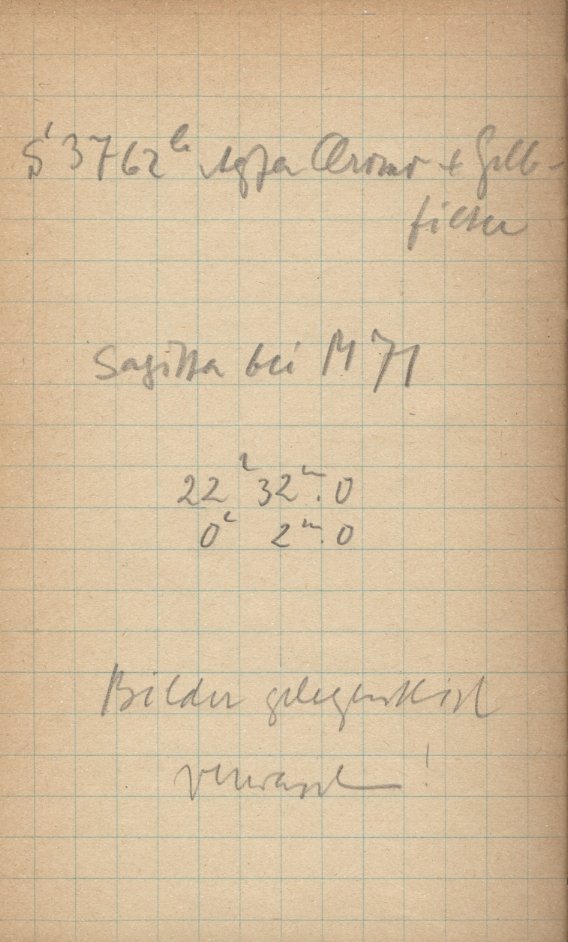 S 3762 b Agfa Chromo + Gelb-
filter
Sagitta bei M 71
22 h 32 m.0
0 h 2 m.0
Bilder gelegentlich
verwaschen!